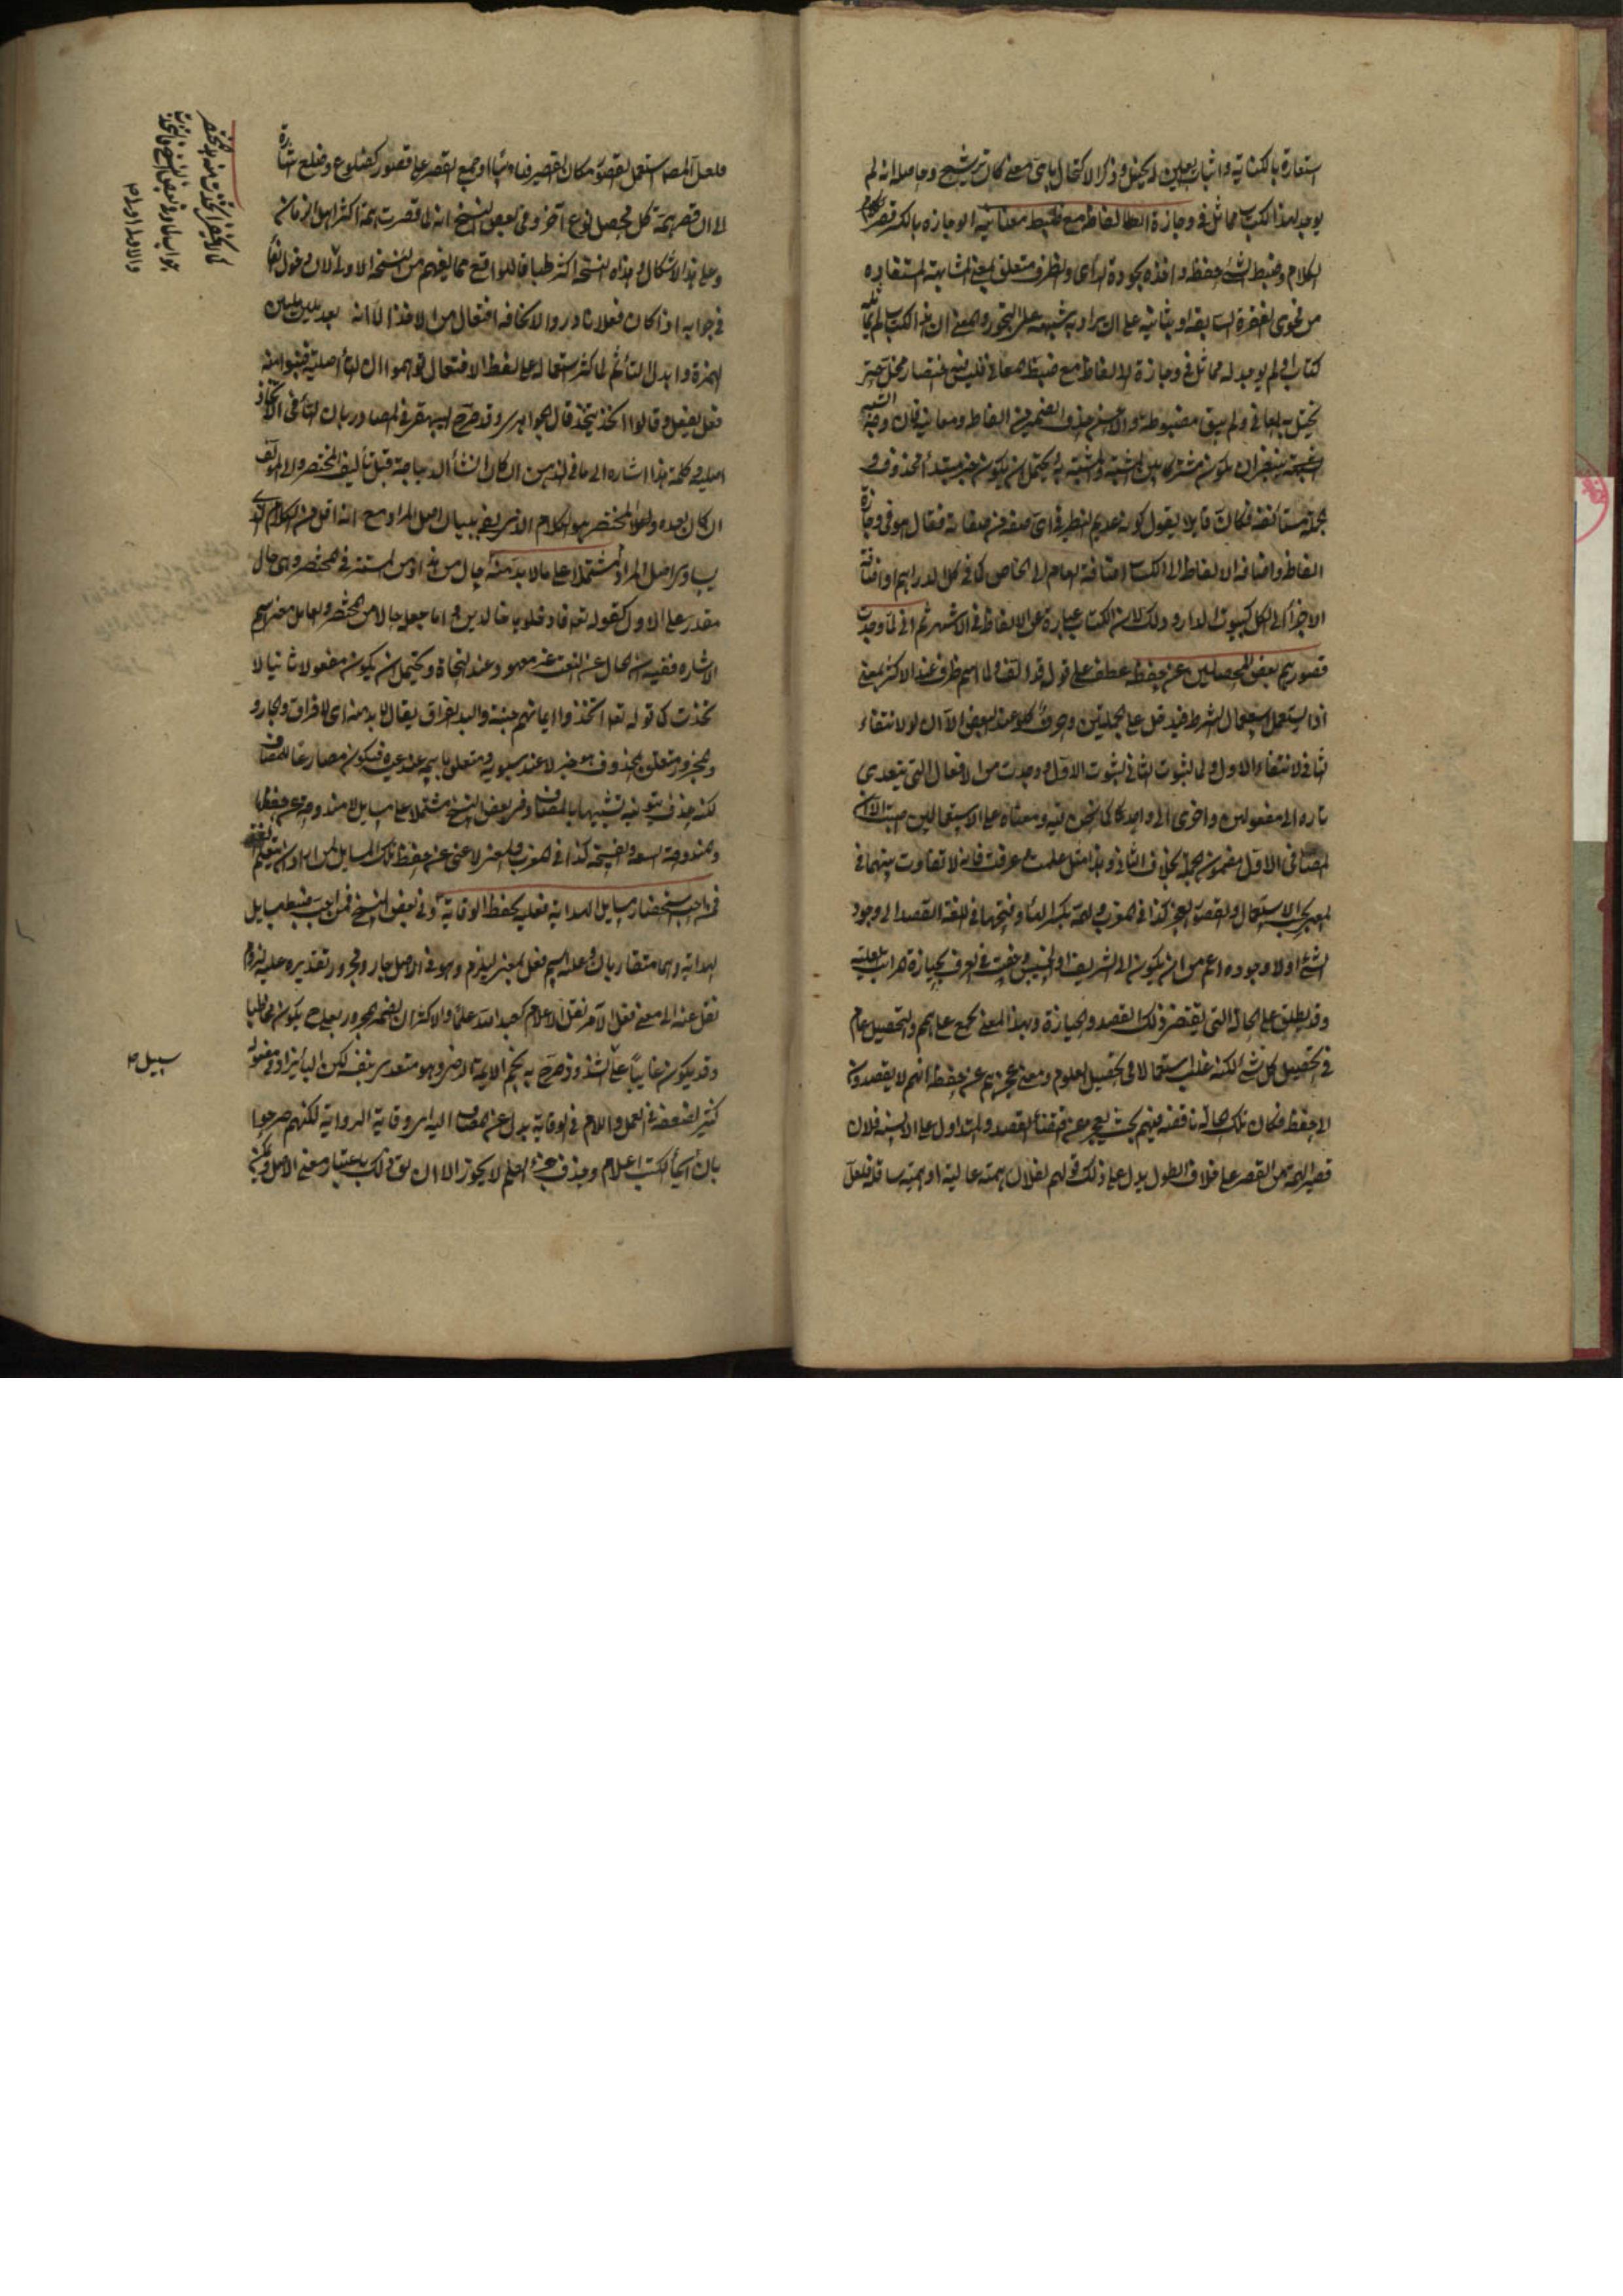 استعارة بالكناية واثبات العين له تخييل وذكر الاكتحال باى معنى كان ترشيح وحاصله انه لم
يوجد لهذا الكتاب مماثل فى وجازة الفاظه مع ضبط معانيه الوجازة بالكسر قصر الكلام
الكلام وضبط الشئ حفظه واخذه بجودة الرأى والظرف متعلق بمعنى المشابهة المستفادة
من فحوى الفقرة السابقة او بثانيه على ان يراد به شبهه على التجوز والمعنى ان هذا الكتاب لم يماثله
كتاب اى لم يوجد له مماثل فى وجازة الالفاظ مع ضبط المعانى فليس فيه اختصار مخل حتى
يختل به المعانى ولم يبق مضبوطة والاحسن حذف الضمير من الفاظه ومعانيه فان وجه التشبيه
ينبغى ان يكون مشتركا بين المشبه والمشبه به ويحتمل ان يكون خبر مبتدأ محذوف و
الجملة مستأنفة فكان قايلا يقول كونه عديم النظير فى اى صفة من صفاته فقال هو فى وجازة
الفاظه واضافة الالفاظ الى الكتاب اضافة العام الى الخاص كما فى كل الدراهم او اضافة
الاجزاء الى الكل كبيوت الدار وذلك لان الكتاب عبارة عن الالفاظ فى الاشهر ثم انى لما وجدت
قصور همم بعض المحصلين عن حفظه عطف على قوله قد الف ولما اسم ظرف عند الاكثر بمعنى
اذا يستعمل استعمال الشرط فيدخل على الجملتين وحرف كلو عند البعض الا ان لو لانتفاء
الثانى لانتفاء الاول ولما لثبوت الثانى لثبوت الاول ووجدت من الافعال التى يتعدى
تارة الى مفعولين واخرى الى واحد كما نحن فيه ومعناه على الاستعمالين الاصابة الا ان
المصاب فى الاول مضمون الجملة بخلاف الثانى وهذا مثل علمت وعرفت فانه لا تفاوت بينهما فى
المعنى بل بحسب الاستعمال والقصور العجز كذا فى المغرب والهمة بكسر الهاء وفتحها فى اللغة القصد الى وجود
الشئ او لا وجوده اعم من ان يكون الى الشريف او الخسيس وخصت فى العرف بحيازة المراتب العلية
وقد يطلق على الحالة التى يقتضى ذلك القصد والحيازة وبهذا المعنى يجمع على الهمم والتحصيل عام
فى تحصيل كل شئ لكنه غلب استعمالا فى تحصيل العلوم ومعنى عجز همهم عن حفظه انهم لا يقصدون
الى حفظه فكان تلك الحالة ناقصة فيهم بحيث يعجز عن اقتضاء القصد والمتداول على الالسنة فلان
قصير الهمة من القصر على خلاف الطول يدل على ذلك قولهم لفلان همته عالية او همته ساقلة فلعل
فلعل المصنف استعمل القصور مكان القصر فناوبا او جمع القصر على قصور كضلوع وضلع اشارة
الى ان قصر همة كل محصل نوع آخر وفى بعض النسخ انه لما قصرت همة اكثر اهل الزمان
وعلى هذا لا اشكال وهذه النسخة اكثر طباقا للواقع مما يفهم من النسخة الاولى لان دخول الفاء
فى جوابه اذا كان فعلا نادر والاتخاذ افتعال من الاخذ الا انه بعد تليين
الهمزة وابدال التاء ثم لما كثر استعماله على لفظ الافتعال توهموا ان التاء اصلية فبنوا منه
فعل يفعل وقالوا تخذ يتخذ قال الجوهرى وقد صرح البيهقى فى المصادر بان التاء فى الاتخاذ
اصلية وكلمة هذا اشارة الى ما فى الذهن ان كان انشأ الديباجة قبل تأليف المختصر والى المؤلف
ان كان بعده والمختصر هو الكلام الذى يفى ببيان اصل المراد مع انه اقل من الكلام الذى
يساوى اصل المراد مشتملا على ما لا بد منه حال من هذا او من المستتر فى المختصر وهى حال
مقدرة على الاول كقوله تعالى فادخلوها خالدين واما جعله حالا من المختصر والعامل معنى اسم
الاشارة ففيه ان الحال عن النعت غير معهود عند النحاة ويحتمل ان يكون مفعولا ثانيا لا
تخذت كما قوله تعالى اتخذوا ايمانهم جنة والبد الفراق يقال لا بد منه اى لا فراق والجار و
المجرور متعلق بمحذوف هو خبر لا عند سيبويه ومتعلق باسمه عند غيره فيكون مضارعا للمضاف
لكنه حذف تنوينه تشبيها بالمضاف وفى بعض النسخ مشتملا على مسايل لا مندوحة عن حفظها
والمندوحة السعة والفسحة كذا فى المغرب والمعنى لا غنى عن حفظ تلك المسايل لمن اراد ان يتعلم الفقه
فمن احب استحضار مسايل الهداية فعليه بحفظ الوقاية وفى بعض النسخ فمن احب ضبط مسايل
الهداية وهما متقاربان وعليه اسم فعل بمعنى ليلزم وهو فى الاصل جار ومجرور تقديره عليه لزوم
نقل عنه الى معنى فعل الامر نقل الاعلام كعبد الله علما والاكثر ان الضمير المجرور بعلى يكون مخاطبا
وقد يكون غايبا على الشذوذ صرح به نجم الايمة الرضى وهو متعد بنفسه لكن الباء يزاد فى مفعوله
كثيرا لضعفه فى العمل واللام فى الوقاية بدل عن المضاف اليه اى وقاية الرواية لكنهم صرحوا
بان اسماء الكتب اعلام وحذف جزء العلم لا يجوز الا ان يقال ذلك باعتبار معنى الاصل ويمكن
سبيل